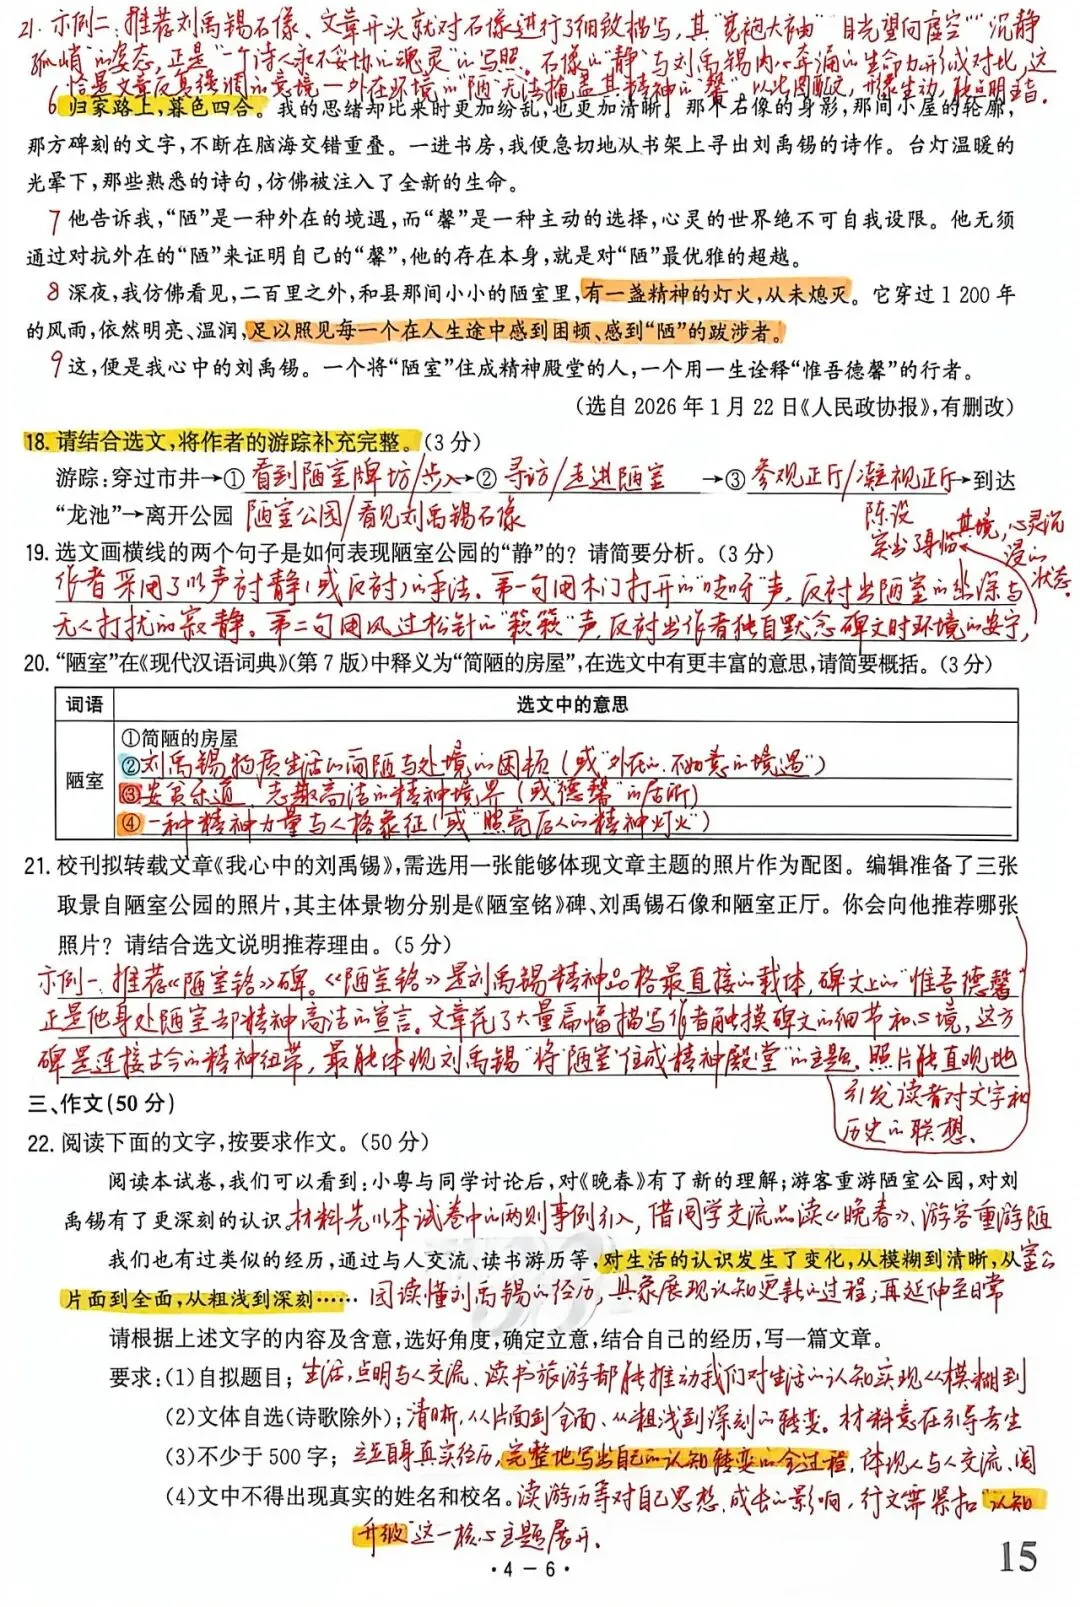 21. 示例二：推荐刘禹锡石像、文章开头就对石像进行了细致描写，其“宽袍大袖”“目光望向虚空”“沉静
孤峭”的姿态，正是“一个诗人永不妥协的魂灵”的写照。石像的“静”与刘禹锡内心奔涌的生命力形成对比，这
恰是文章反复强调的意境—外在环境的“陋”无法掩盖其精神的“馨”，以此图配文，形象生动，能点明主旨。
6 归家路上，暮色四合。我的思绪却比来时更加纷乱，也更加清晰。那个石像的身影，那间小屋的轮廓，
那方碑刻的文字，不断在脑海交错重叠。一进书房，我便急切地从书架上寻出刘禹锡的诗作。台灯温暖的
光晕下，那些熟悉的诗句，仿佛被注入了全新的生命。
7 他告诉我，“陋”是一种外在的境遇，而“馨”是一种主动的选择，心灵的世界绝不可自我设限。他无须
通过对抗外在的“陋”来证明自己的“馨”，他的存在本身，就是对“陋”最优雅的超越。
8 深夜，我仿佛看见，二百里之外，和县那间小小的陋室里，有一盏精神的灯火，从未熄灭。它穿过1 200年
的风雨，依然明亮、温润，足以照见每一个在人生途中感到困顿、感到“陋”的跋涉者。
9 这，便是我心中的刘禹锡。一个将“陋室”住成精神殿堂的人，一个用一生诠释“惟吾德馨”的行者。
（选自2026年1月22日《人民政协报》，有删改）
18. 请结合选文，将作者的游踪补充完整。（3分）
游踪：穿过市井→① 看到陋室牌坊/步入→② 寻访/走进陋室 →③ 参观正厅/凝视正厅→到达
“龙池”→离开公园 陋室公园/看见刘禹锡石像 陈设
19. 选文画横线的两个句子是如何表现陋室公园的“静”的？请简要分析。（3分）
突出身临其境，心灵沉浸的状态。
作者采用了以声衬静（或反衬）的手法。第一句用木门打开的“吱呀”声，反衬出陋室的幽深与
无人打扰的寂静。第二句用风过松针的“簌簌”声，反衬出作者独自默念碑文时环境的安宁，
20. “陋室”在《现代汉语词典》（第7版）中释义为“简陋的房屋”，在选文中有更丰富的意思，请简要概括。（3分）
词语 选文中的意思
陋室 ①简陋的房屋
②刘禹锡物质生活的简陋与处境的困顿（或“外在的、不如意的境遇”）
③安贫乐道、志趣高洁的精神境界（或“德馨”的居所）
④一种精神力量与人格象征（或“照亮后人的精神灯火”）
21. 校刊拟转载文章《我心中的刘禹锡》，需选用一张能够体现文章主题的照片作为配图。编辑准备了三张
取景自陋室公园的照片，其主体景物分别是《陋室铭》碑、刘禹锡石像和陋室正厅。你会向他推荐哪张
照片？请结合选文说明推荐理由。（5分）
示例一：推荐《陋室铭》碑。《陋室铭》是刘禹锡精神品格最直接的载体，碑文上的“惟吾德馨”
正是他身处陋室却精神高洁的宣言。文章花了大量篇幅描写作者触摸碑文的细节和心境，这方
碑是连接古今的精神纽带，最能体现刘禹锡“将‘陋室’住成精神殿堂”的主题。照片能直观地
引发读者对文字和
历史的联想。
三、作文（50分）
22. 阅读下面的文字，按要求作文。（50分）
阅读本试卷，我们可以看到：小粤与同学讨论后，对《晚春》有了新的理解；游客重游陋室公园，对刘
禹锡有了更深刻的认识。材料先以本试卷中的两则事例引入，借同学交流品读《晚春》、游客重游陋
我们也有过类似的经历，通过与人交流、读书游历等，对生活的认识发生了变化，从模糊到清晰，从 室公
片面到全面，从粗浅到深刻…… 园读懂刘禹锡的经历，具象展现认知更新的过程；再延伸至日常
请根据上述文字的内容及含意，选好角度，确定立意，结合自己的经历，写一篇文章。
要求：(1)自拟题目； 生活，点明与人交流、读书旅游都能推动我们对生活的认知实现从模糊到
(2)文体自选（诗歌除外）；清晰，从片面到全面、从粗浅到深刻的转变。材料意在引导考生
(3)不少于500字； 立足自身真实经历，完整地写出自己的认知转变的全过程，体现人与人交流、阅
(4)文中不得出现真实的姓名和校名。读游历等对自己思想、成长的影响，行文需紧扣“认知
升级”这一核心主题展开。
·4－6·
15